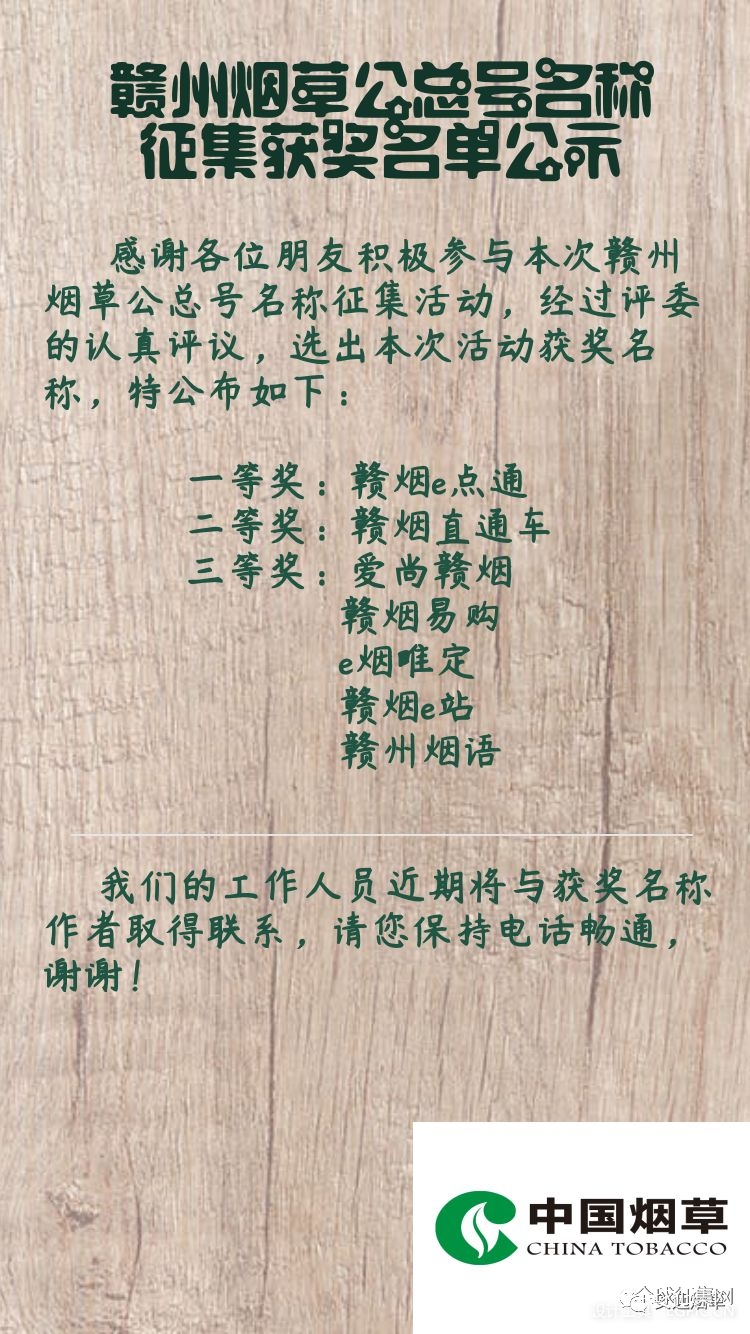 赣州烟草公总号名称
征集获奖名单公示
感谢各位朋友积极参与本次赣州
烟草公总号名称征集活动，经过评委
的认真评议，选出本次活动获奖名
称，特公布如下：
一等奖：赣烟e点通
二等奖：赣烟直通车
三等奖：爱尚赣烟
赣烟易购
e烟唯定
赣烟e站
赣州烟语
我们的工作人员近期将与获奖名称
作者取得联系，请您保持电话畅通，
谢谢！
中国烟草
CHINA TOBACCO